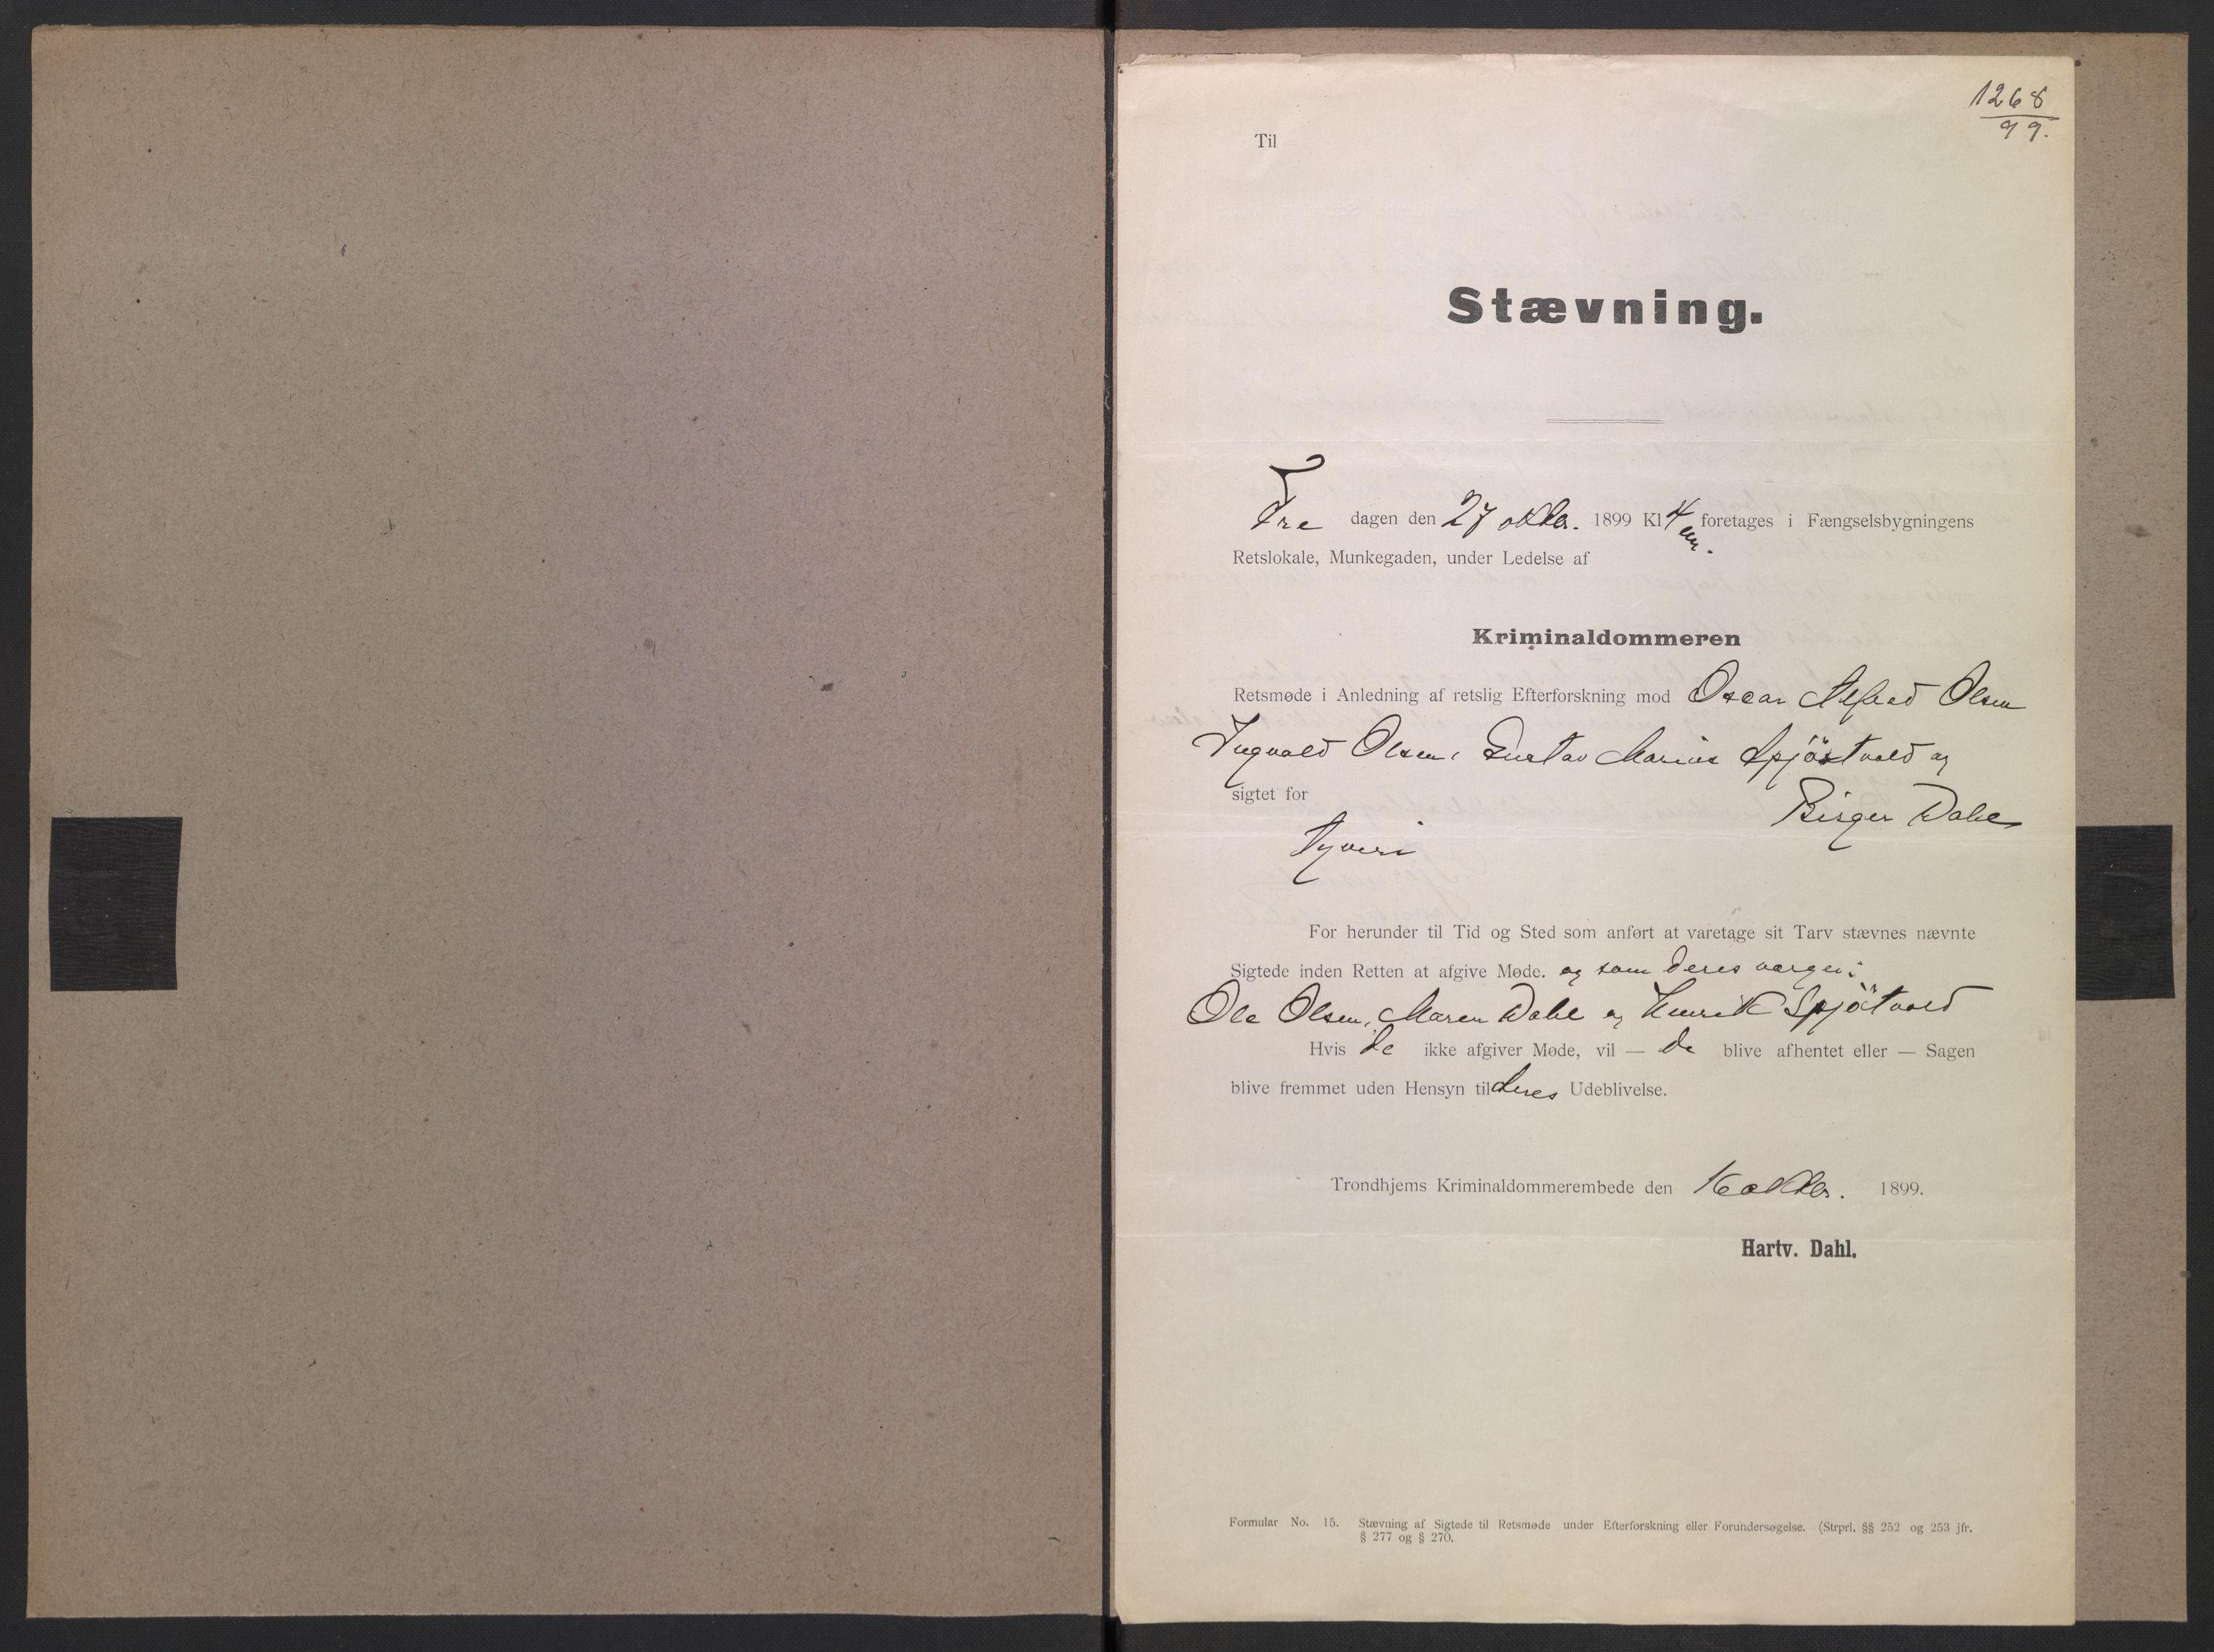 1268
99.
Til
Stævning.
Fre dagen den 27 oktbr. 1899 Kl 4 em. foretages i Fængselsbygningens
Retslokale, Munkegaden, under Ledelse af
Kriminaldommeren
Retsmøde i Anledning af retslig Efterforskning mod Oscar Alfred Olsen
Ingvald Olsen, Gustav Marius Spjøtvold og
sigtet for Birger Dahl
tyveri
For herunder til Tid og Sted som anført at varetage sit Tarv stævnes nævnte
Sigtede inden Retten at afgive Møde. og som deres værger:
Ole Olsen, Maren Dahl og Henrik Spjøtvold
Hvis de ikke afgiver Møde, vil — de blive afhentet eller — Sagen
blive fremmet uden Hensyn til deres Udeblivelse.
Trondhjems Kriminaldommerembede den 16 oktbr. 1899.
Hartv. Dahl.
Formular No. 15. Stævning af Sigtede til Retsmøde under Efterforskning eller Forundersøgelse. (Strprl. §§ 252 og 253 jfr.
§ 277 og § 270.